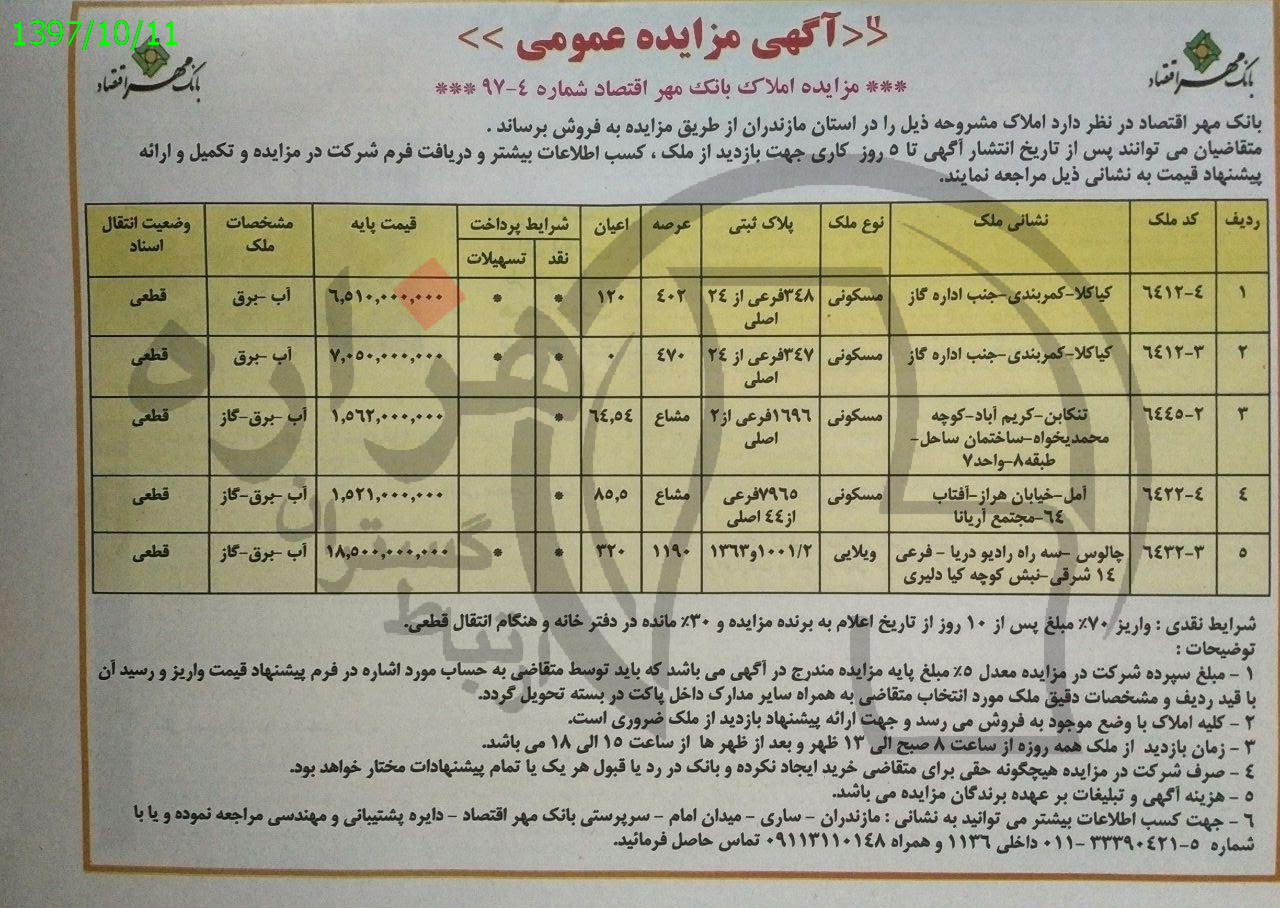 1397/10/11
<<آگهی مزایده عمومی >>
بانک مهر اقتصاد
بانک مهر اقتصاد
*** مزایده املاک بانک مهر اقتصاد شماره ٤-٩٧ ***
بانک مهر اقتصاد در نظر دارد املاک مشروحه ذیل را در استان مازندران از طریق مزایده به فروش برساند .
متقاضیان می توانند پس از تاریخ انتشار آگهی تا ٥ روز کاری جهت بازدید از ملک ، کسب اطلاعات بیشتر و دریافت فرم شرکت در مزایده و تکمیل و ارائه
پیشنهاد قیمت به نشانی ذیل مراجعه نمایند.
ردیف کد ملک نشانی ملک نوع ملک پلاک ثبتی عرصه اعیان شرایط پرداخت قیمت پایه مشخصات ملک وضعیت انتقال اسناد
نقد تسهیلات
١ ٦٤١٢-٤ کیاکلا-کمربندی-جنب اداره گاز مسکونی ٣٤٨فرعی از ٢٤ اصلی ٤٠٢ ١٢٠ * * ٦,٥١٠,٠٠٠,٠٠٠ آب -برق قطعی
٢ ٦٤١٢-٣ کیاکلا-کمربندی-جنب اداره گاز مسکونی ٣٤٧فرعی از ٢٤ اصلی ٤٧٠ ٠ * * ٧,٠٥٠,٠٠٠,٠٠٠ آب -برق قطعی
٣ ٦٤٤٥-٢ تنکابن-کریم آباد-کوچه محمدیخواه-ساختمان ساحل-طبقه٨-واحد٧ مسکونی ١٦٩٦فرعی از٢ اصلی مشاع ٦٤,٥٤ * ١,٥٦٢,٠٠٠,٠٠٠ آب -برق-گاز قطعی
٤ ٦٤٢٢-٤ آمل-خیابان هراز-آفتاب ٦٤-مجتمع آریانا مسکونی ٧٩٦٥فرعی از٤٤ اصلی مشاع ٨٥,٥ * ١,٥٢١,٠٠٠,٠٠٠ آب -برق-گاز قطعی
٥ ٦٤٣٢-٣ چالوس -سه راه رادیو دریا - فرعی ١٤ شرقی-نبش کوچه کیا دلیری ویلایی ١٠٠١/٢و١٣٦٣ ١١٩٠ ٣٢٠ * * ١٨,٥٠٠,٠٠٠,٠٠٠ آب -برق-گاز قطعی
شرایط نقدی : واریز ٧٠٪ مبلغ پس از ١٠ روز از تاریخ اعلام به برنده مزایده و ٣٠٪ مانده در دفتر خانه و هنگام انتقال قطعی.
توضیحات :
١ - مبلغ سپرده شرکت در مزایده معدل ٥٪ مبلغ پایه مزایده مندرج در آگهی می باشد که باید توسط متقاضی به حساب مورد اشاره در فرم پیشنهاد قیمت واریز و رسید آن
با قید ردیف و مشخصات دقیق ملک مورد انتخاب متقاضی به همراه سایر مدارک داخل پاکت در بسته تحویل گردد.
٢ - کلیه املاک با وضع موجود به فروش می رسد و جهت ارائه پیشنهاد بازدید از ملک ضروری است.
٣ - زمان بازدید از ملک همه روزه از ساعت ٨ صبح الی ١٣ ظهر و بعد از ظهر ها از ساعت ١٥ الی ١٨ می باشد.
٤ - صرف شرکت در مزایده هیچگونه حقی برای متقاضی خرید ایجاد نکرده و بانک در رد یا قبول هر یک یا تمام پیشنهادات مختار خواهد بود.
٥ - هزینه آگهی و تبلیغات بر عهده برندگان مزایده می باشد.
٦ - جهت کسب اطلاعات بیشتر می توانید به نشانی : مازندران - ساری - میدان امام - سرپرستی بانک مهر اقتصاد - دایره پشتیبانی و مهندسی مراجعه نموده و یا با
شماره ٥-٣٣٣٩٠٤٢١ -٠١١ داخلی ١١٣٦ و همراه ٠٩١١٣١١٠١٤٨ تماس حاصل فرمائید.
هزاره
گستران
ارتباط